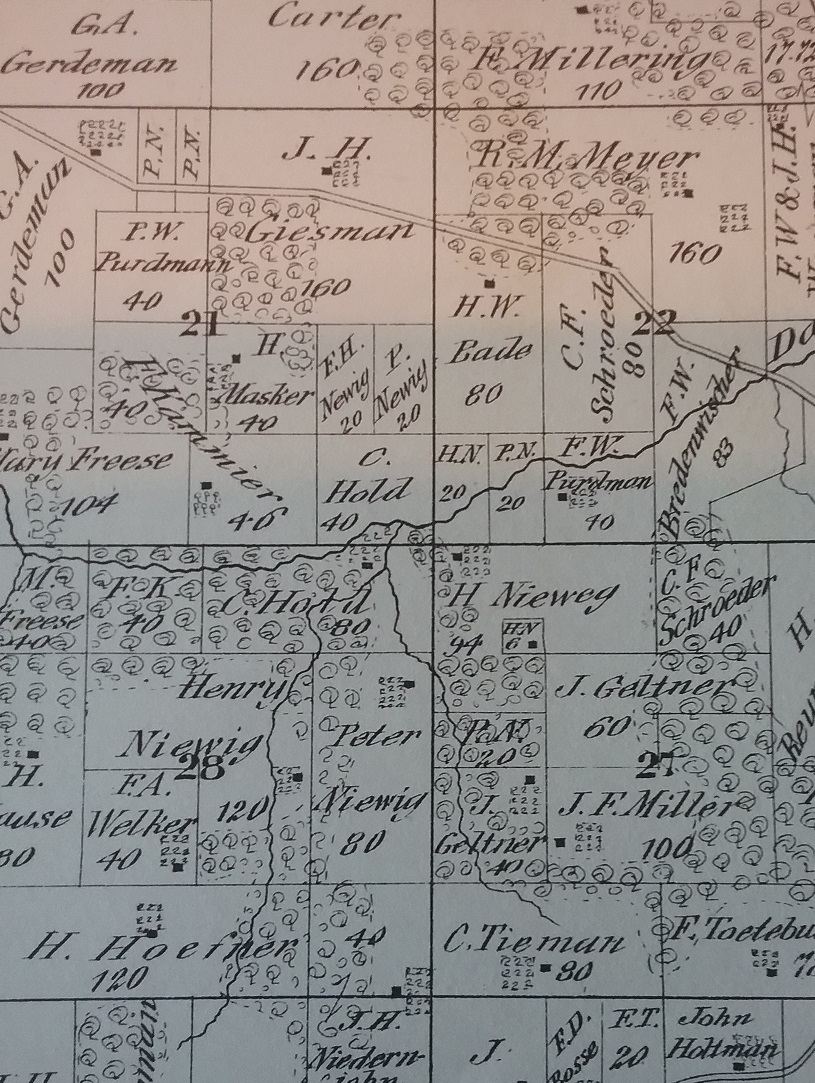 G.A.
Gerdeman
100
Carter
160
F. Millering
110
17.72
G.A.
Gerdeman
100
P.N.
P.N.
J. H.
Giesman
160
R. M. Meyer
160
F.W & J.H.
P.W.
Purdmann
40
21
H.W.
Bade
80
C.F.
Schroeder
80
22
F. Kammier
40
46
H.
Masker
40
F.H.
Newig
20
P.
Newig
20
F.W.
Bredenwischer
83
Mary Freese
104
C.
Hold
40
H.N.
20
P.N.
20
F.W.
Purdman
40
M.
Freese
40
F.K.
40
C. Hold
80
H Nieweg
94
H.N
6
C.F.
Schroeder
40
H.
Henry
Niewig
28
120
Peter
Niewig
80
J. Geltner
60
P.N.
20
27
H.
80
F.A.
Welker
40
J.
Geltner
40
J.F. Miller
100
H. Hoefner
120
40
C. Tieman
80
F. Toetebu
J.H.
Niedern-
john
J.
F.D.
Bosse
F.T.
20
John
Holtman